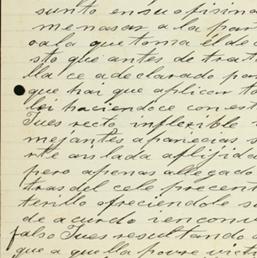 sunto en su ofisina
menasar a la par
rala que toma el de c
sto que antes de trat
lla ce a declarado par
que hai que aplicar to
lei haciendoce con est
Jues recto inflexible
mejantes aparecias
rte anlada aflijida
pero apenas allegado
tras del cele precen
tenllo ofreciendole s
de acurdo i enconv
falso Jues resultando
que a quella povre vict